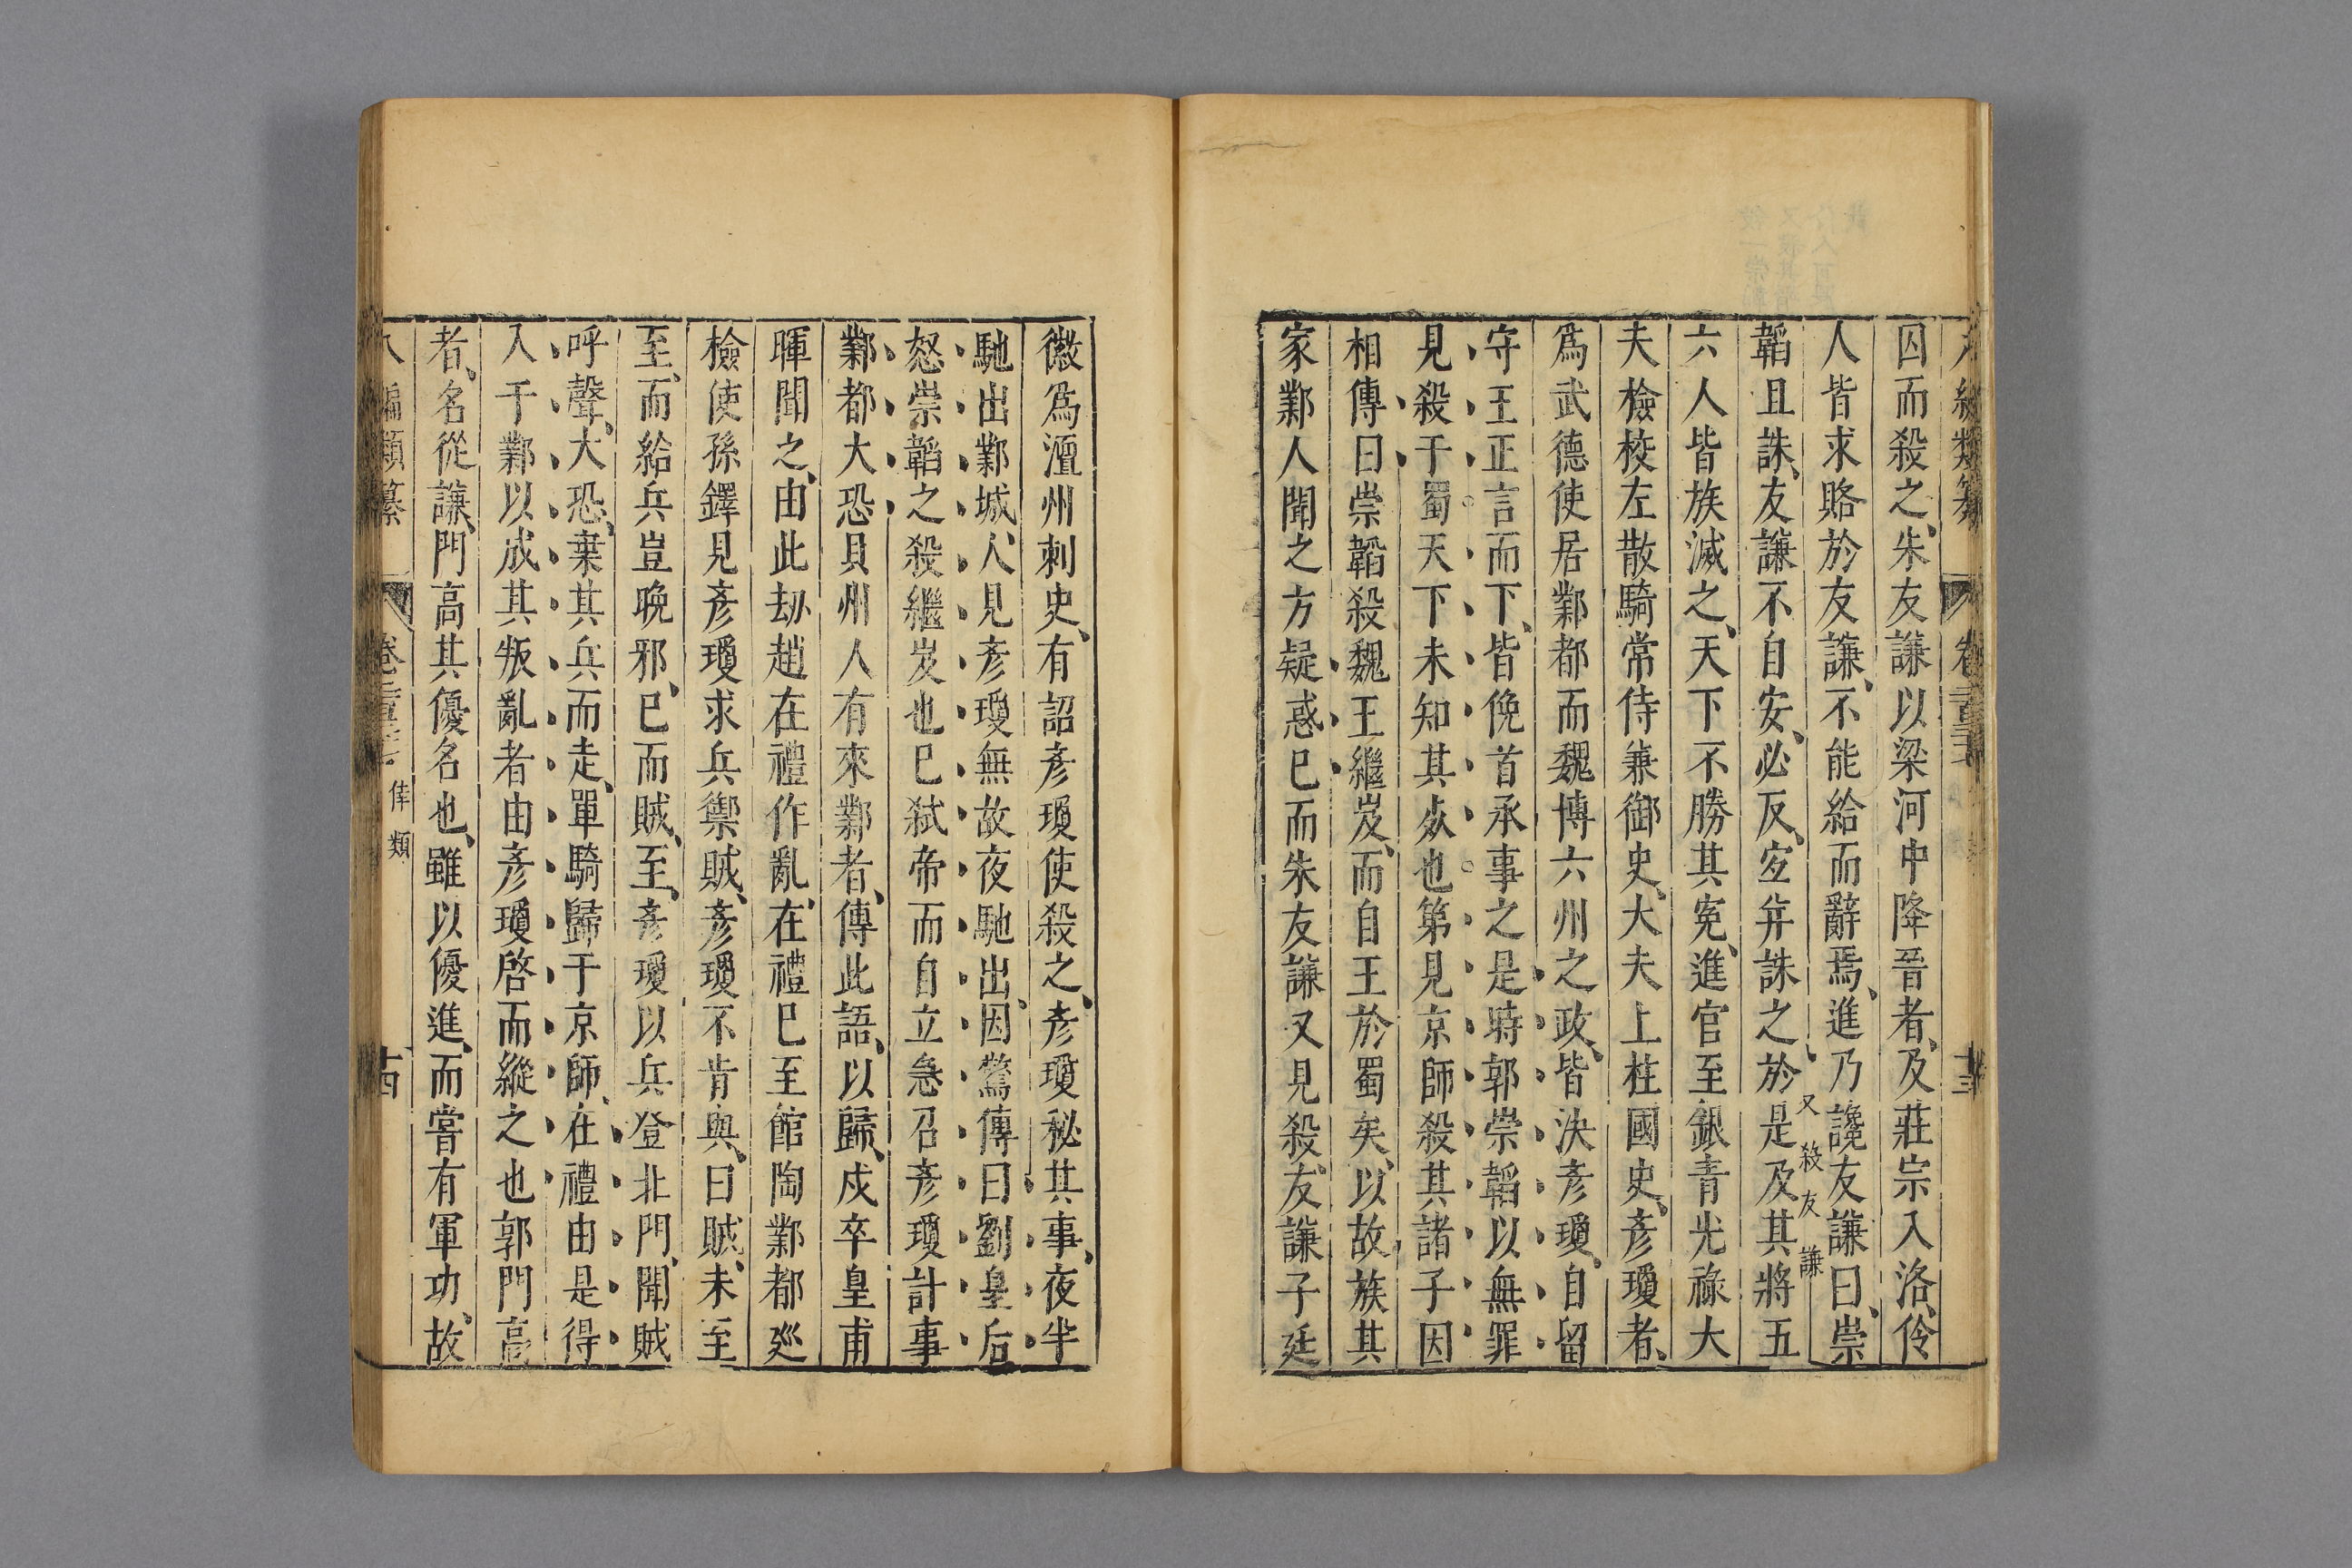 八編類纂 卷 十三
囚而殺之、朱友謙以梁河中降晉者、及莊宗入洛、伶
人皆求賂於友謙、不能給而辭焉、進乃讒友謙曰、崇
又殺友謙
韜且誅、友謙不自安、必反、宐并誅之、於是及其將五
六人皆族滅之、天下不勝其寃、進官至銀青光祿大
夫檢校左散騎常侍兼御史、大夫上柱國史、彥瓊者、
爲武德使居鄴都而魏博六州之政、皆決彥瓊、自留
守王正言而下、皆俛首承事之是時郭崇韜以無罪
見殺于蜀天下未知其死也第見京師殺其諸子因
相傳、曰、崇韜殺魏王繼岌、而自王於蜀矣、以故族其
家鄴人聞之方疑惑巳而朱友謙又見殺、友謙子廷
徽爲澶州刺史、有詔彥瓊使殺之、彥瓊秘其事、夜半
馳出鄴城、人見彥瓊無故夜馳出、因驚傳曰劉皇后
怒崇韜之殺繼岌也巳弑帝而自立急召彥瓊計事
鄴都大恐貝州人有來鄴者、傳此語、以歸、戍卒皇甫
暉聞之、由此劫趙在禮作亂、在禮巳至館陶鄴都巡
檢使孫鐸見彥瓊求兵禦賊、彥瓊不肯與、曰賊、未至
至、而給兵豈晚邪、巳而賊、至、彥瓊以兵登北門、聞賊
呼聲、大恐、棄其兵而走、單騎歸于京師、在禮由是得
入于鄴以成其叛亂者由彥瓊啓而縱之也郭門高
者、名從謙、門高其優名也、雖以優進、而嘗有軍功、故
八編類纂 卷 倖類 十四